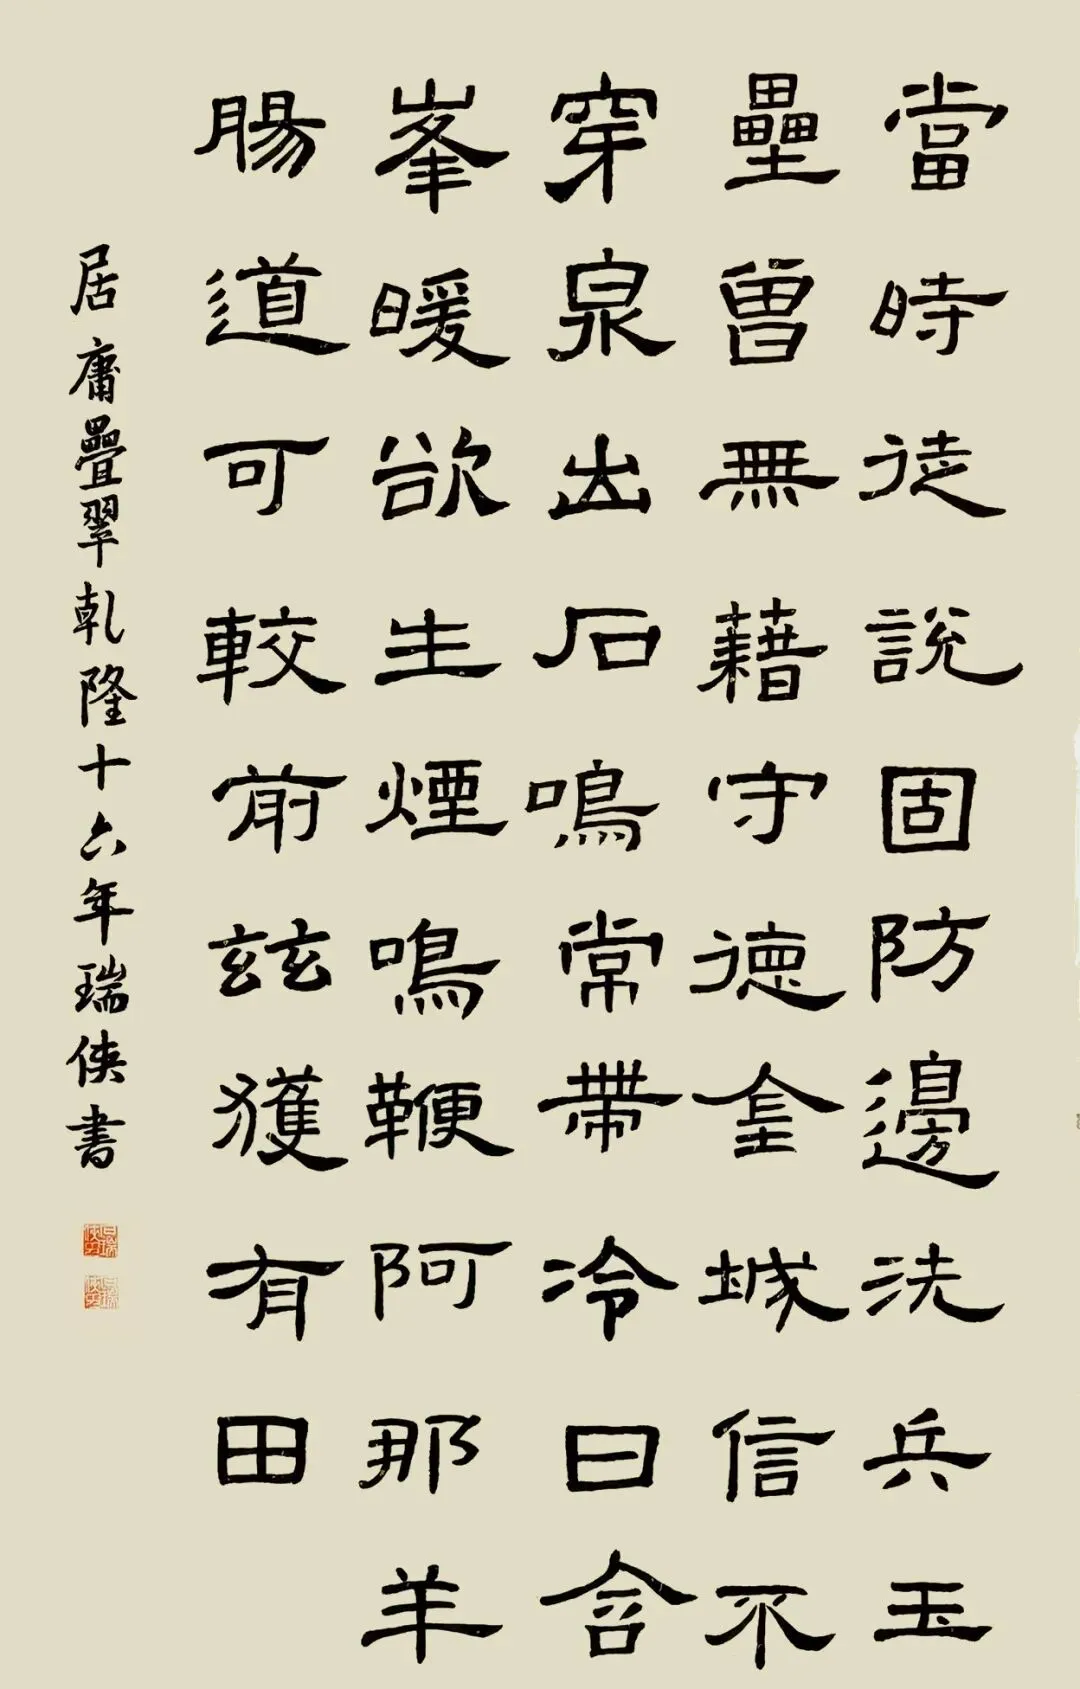 當時徒說固防邊洗兵玉
壘曾無藉守德金城信不
穿泉出石鳴常帶冷日含
峯暖欲生煙鳴鞭阿那羊
腸道可較前兹獲有田
居庸疊翠乾隆十六年瑞俠書